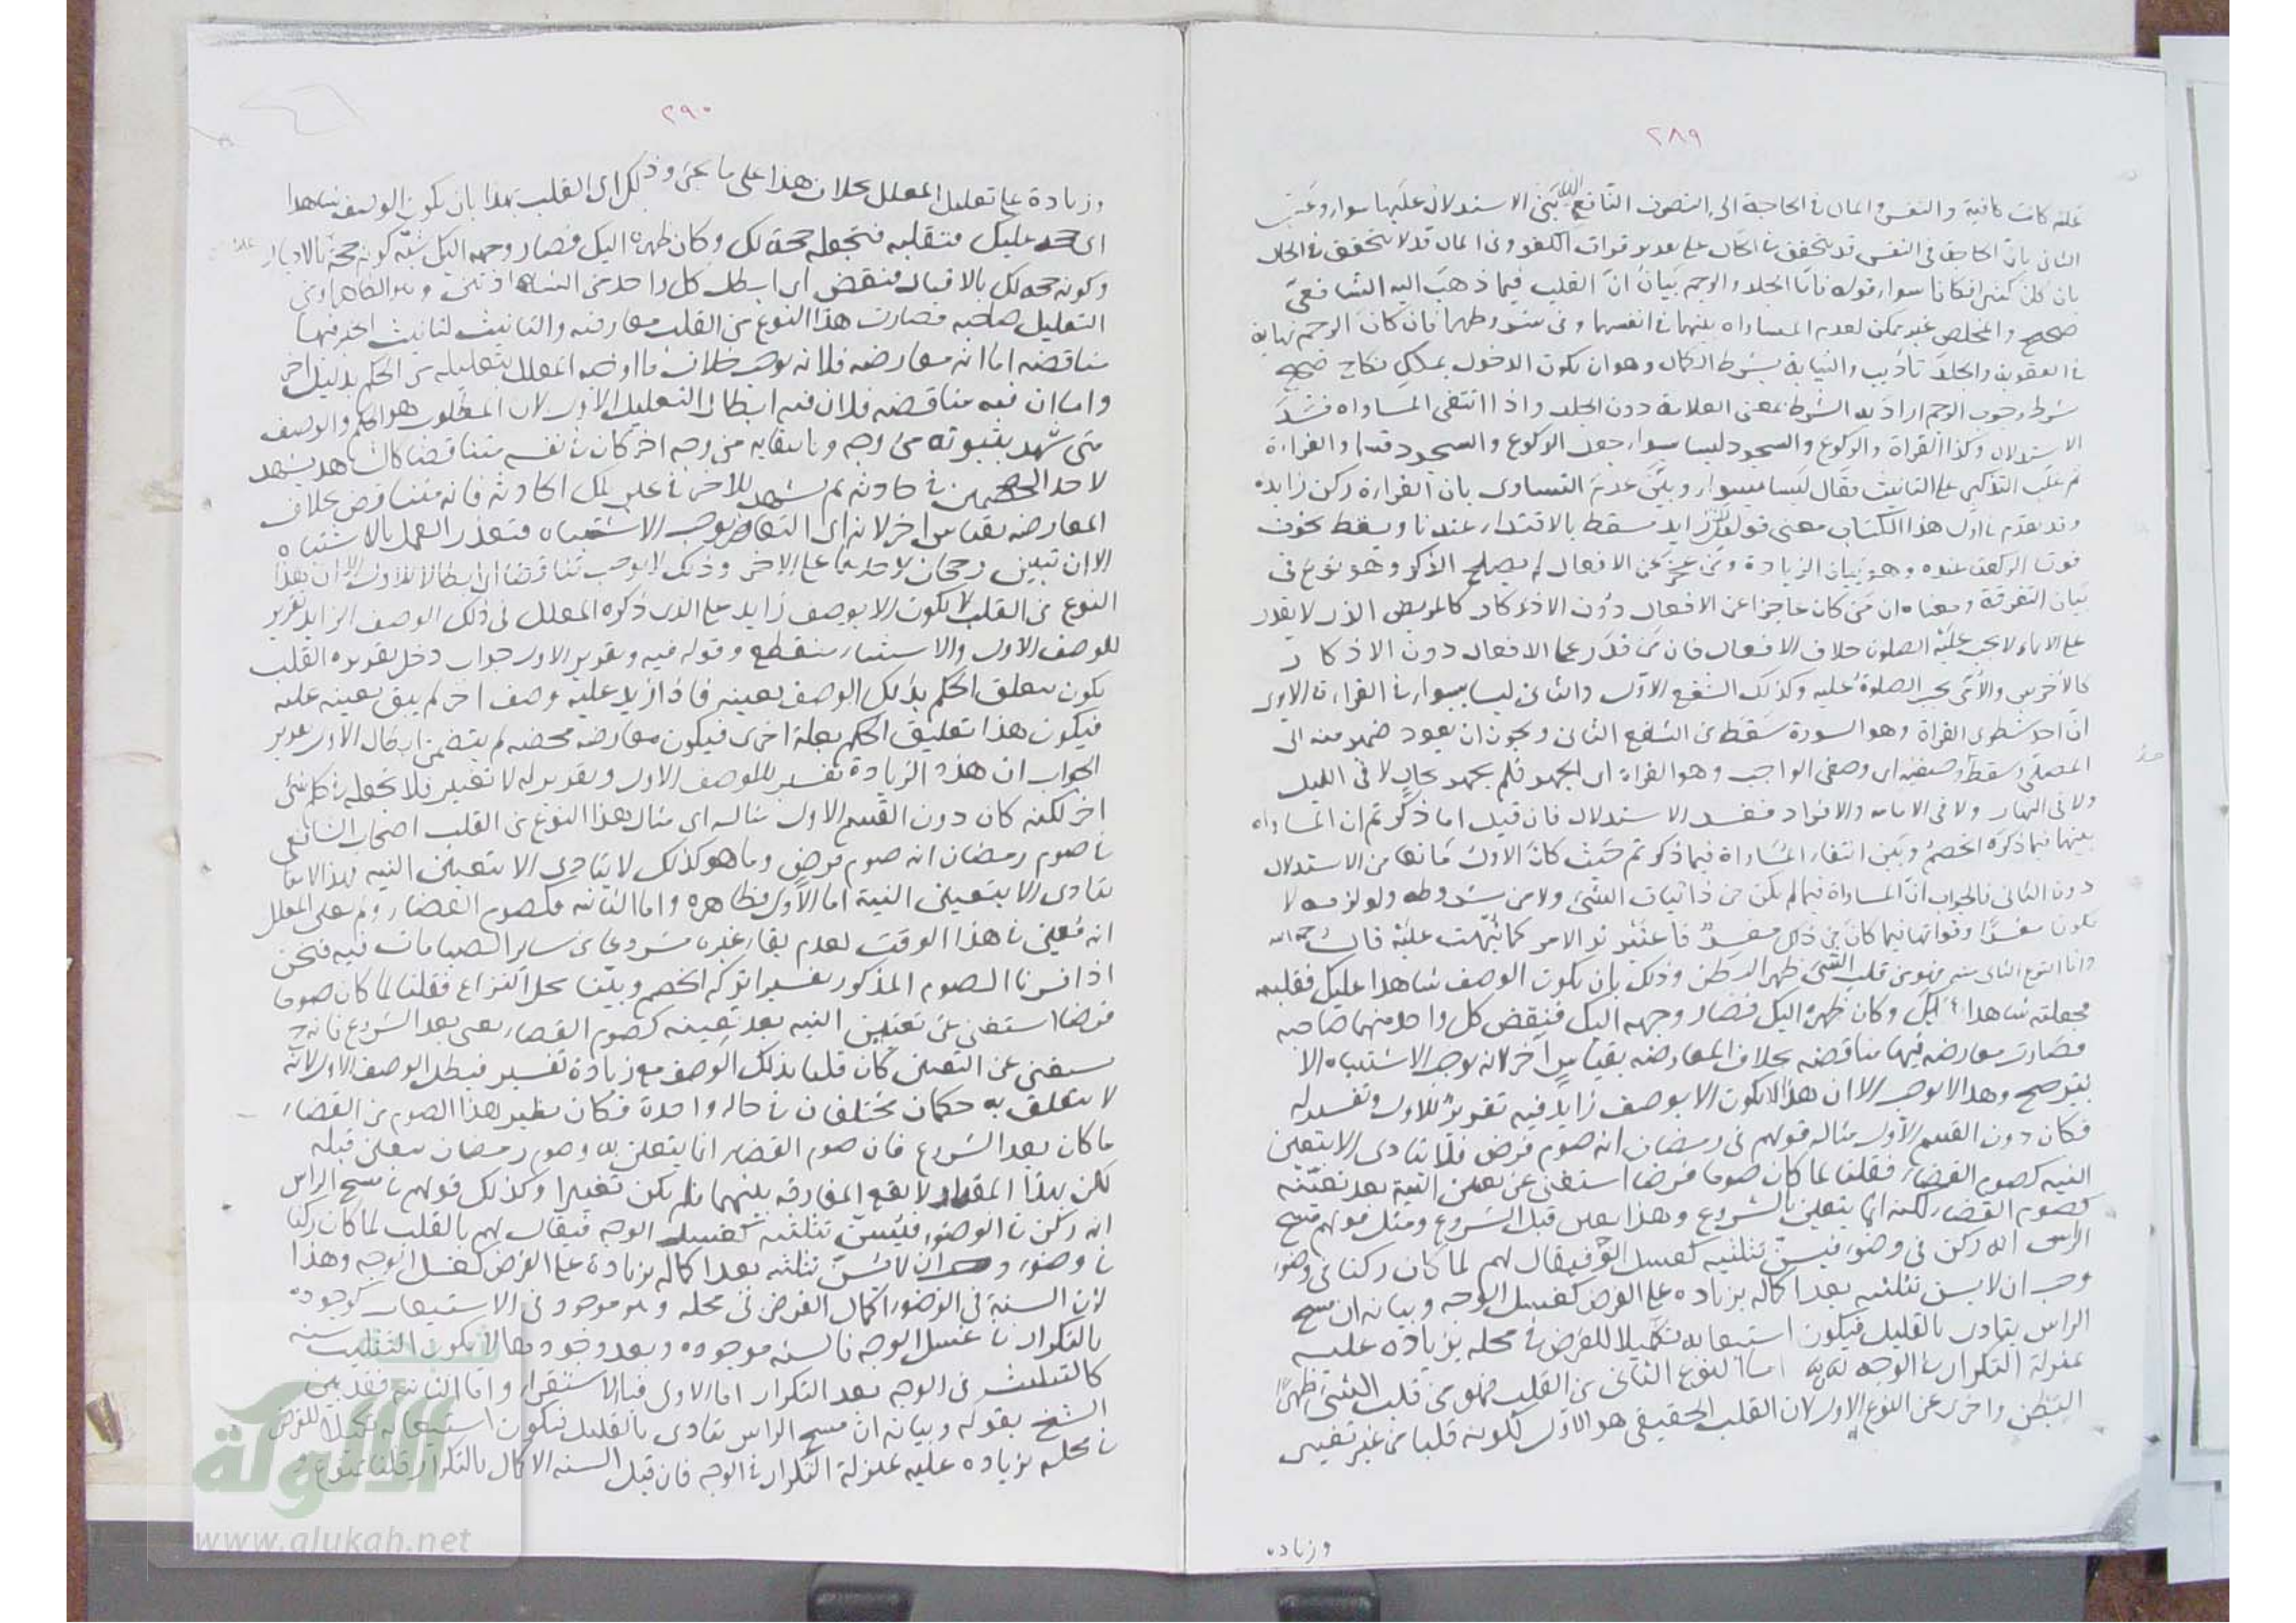 ٢٨٩
علة كانت كافية والنفس والمال في الحاجة الى التصرف النافع الذي يبتنى الاستدلال عليها سواء
الثاني بان الحاجة في النفس قد تتحقق في الحال على تقدير فوات الكفو وفي المال قد لا تتحقق في الحال
فكانا سواء قوله فاما الجلد والرجم بيان ان القلب فيما ذهب اليه الشافعي
صحيح والمخلص غير ممكن لعدم المساواة بينهما في انفسهما وفي شروطهما فان كان الرجم نهاية
في العقوبة والجلد تأديب والثيابة بشرط الكمال وهو ان يكون الدخول بملك نكاح صحيح
شرط وجوب الرجم اراد به الشرط بمعنى العلامة دون الجلد واذا انتفى المساواة فسد
الاستدلال وكذا القراة والركوع والسجود ليسا سواء جعل الركوع والسجود قسما والقراءة
ثم غلب التذكير على التانيث فقال ليسا بسواء وبين عدم التساوى بان القراءة ركن زايد
وقد تقدم في اول هذا الكتاب معنى قولهم ركن زايد يسقط بالاقتداء عندنا ويسقط بخوف
فوت الركعة عنده وهو بيان الزيادة ومن عجز عن الافعال لم يصلح الذكر وهو نوع في
بيان التفرقة ومعناه ان من كان عاجزا عن الافعال دون الاذكار كالمريض الذي لا يقدر
على الايماء لا يجب عليه الصلوة خلاف الافعال فان من قدر على الافعال دون الاذكار
كالأخرس والأمي يجب الصلوة عليه وكذلك الشفع الاول والثاني ليسا بسواء في القراءة الاولى
ان احد شطري القراة وهو السورة سقط في الشفع الثاني ويجوز ان يعود ضمير منه الى
المصلى وسقط وصفه اي وصف الواجب وهو القراة اي الجهر فلم يجهر بحال لا في الليل
ولا في النهار ولا في الامامة والانفراد ففسد الاستدلال فان قيل اما ذكرتم ان المساواة
بينهما فيما ذكره الخصم وبين انتفاء المساواة فيما ذكرتم حيث كان الاول مانعا من الاستدلال
دون الثاني فالجواب ان المساواة فيما لم يكن من ذاتيات الشيء ولا من شروطه ولوازمه لا
يكون مفسدا وفواتها فيما كان من ذلك مفسد فاعتبر تدبر الامر كما نبهت عليه قال رحمه الله
واما النوع الثاني منه فهو من قلب الشيء ظهرا لبطن وذلك بان يكون الوصف شاهدا عليك فقلبته
فجعلته شاهدا لك وكان ظهره اليك فصار وجهه اليك فنقض كل واحد منهما صاحبه
فصارت معارضة فيها مناقضة بخلاف المعارضة بقياس آخر لانه يوجب الاشتباه الا
بترجيح وهذا لا يوجب الا ان هذا لا يكون الا بوصف زايد فيه تقرير للاول وتفسير له
فكان دون القسم الاول مثاله قولهم في رمضان انه صوم فرض فلا يتادى الا بتعين
النية كصوم القضاء فقلنا لما كان صوما فرضا استغنى عن تعيين النية بعد تعينه
كصوم القضاء لكنه انما يتعين بالشروع وهذا تعين قبل الشروع ومثل قولهم مسح
الراس انه ركن في وضوء فيسن تثليثه كغسل الوجه فيقال لهم لما كان ركنا في وضوء
وجب ان لا يسن تثليثه بعد اكماله بزيادة على الفرض كغسل الوجه وبيانه ان مسح
الراس يتادى بالقليل فيكون استيعابه تكميلا للفرض في محله بزيادة عليه
بمنزلة التكرار في الوجه اما النوع الثاني من القلب فهو من قلب الشيء ظهرا
لبطن واخر عن النوع الاول لان القلب الحقيقي هو الاول لكونه قلبا من غير تغيير
وزيادة
٢٩٠
وزيادة على تعليل المعلل بخلاف هذا على ما يجئ وذلك اي القلب بهذا بان يكون الوصف شاهدا
اي حجة عليك فتقلبه فتجعله حجة لك وكان ظهره اليك فصار وجهه اليك شبه كونه حجة بالادبار
وكونه حجة لك بالاقبال فنقض اي ابطل كل واحد من
التعليل صاحبه فصارت هذا النوع من القلب معارضة والتانيث لتانيث الخبر فيها
مناقضة اما انه معارضة فلانه يوجب خلاف ما اوجبه المعلل بتعليله من الحكم بدليل اخر
واما ان فيه مناقضة فلان فيه ابطال التعليل الاول لان المطلوب هو الحكم والوصف
متى شهد بثبوته من وجه وبانتفائه من وجه اخر كان في نفسه متناقضا كالشاهد يشهد
لاحد الخصمين في حادثة ثم يشهد للاخر في عين تلك الحادثة فانه متناقض بخلاف
المعارضة بقياس اخر لانه اي التعارض يوجب الاشتباه فتعذر العمل بالاشتباه
الا ان تبين رجحان لاحدهما على الاخر وذلك لا يوجب تناقضا اي ابطالا للاول الا ان هذا
النوع من القلب لا يكون الا بوصف زايد على الذي ذكره المعلل في ذلك الوصف الزايد تقرير
للوصف الاول والاستثناء منقطع وقوله فيه وتقرير الاول جواب دخل تقريره القلب
يكون بتعلق الحكم بذلك الوصف بعينه فاذا زيد عليه وصف اخر لم يبق بعينه علة
فيكون هذا تعليق الحكم بعلة اخرى فيكون معارضة محضة لم يتضمن ابطال الاول تقرير
الجواب ان هذه الزيادة تفسير للوصف الاول وتقرير له لا تغيير فلا تجعله في حكم شيء
اخر لكنه كان دون القسم الاول مثاله اي مثال هذا النوع من القلب اصحاب الشافعي
في صوم رمضان انه صوم فرض وما هو كذلك لا يتادى الا بتعيين النية
يتادى الا بتعيين النية اما الاول فظاهره واما الثانية فكصوم القضاء
انه تعين في هذا الوقت لعدم بقاء غيره مشروعا من ساير الصيامات فيه فنحن
اذا فسرنا الصوم المذكور تفسيرا تركه الخصم وبينا محل النزاع فقلنا لما كان صوما
فرضا استغنى عن تعيين النية بعد تعينه كصوم القضاء يعنى بعد الشروع فانه ح
يستغنى عن التعيين كان قلبا بذلك الوصف مع زيادة تفسير فيبطل الوصف الاول لانه
لا يتعلق به حكمان مختلفان في حالة واحدة فكان نظير هذا الصوم من القضاء
ما كان بعد الشروع فان صوم القضاء انما يتعين به وصوم رمضان يتعين قبله
لكن بهذا المقدار لا يقع المفارقة بينهما فلم يكن تغييرا وكذلك قولهم في مسح الراس
انه ركن في الوضوء فيسن تثليثه كغسل الوجه فيقال لهم بالقلب لما كان ركنا
في وضوء وجب ان لا يسن تثليثه بعد اكماله بزيادة على الفرض كغسل الوجه وهذا
لان السنة في الوضوء اكمال الفرض في محله وهو موجود في الاستيعاب كوجوده
بالتكرار في غسل الوجه فالسنة موجودة وبعد وجودها لا يكون التثليث سنة
كالتثليث في الوجه بعد التكرار اما الاولى فبالاستقراء واما الثانية فقد بين
الشيخ بقوله وبيانه ان مسح الراس يتادى بالقليل فيكون استيعابه تكميلا للفرض
في محله بزيادة عليه بمنزلة التكرار في الوجه فان قيل السنة الاكمال بالتكرار قلنا ممنوع
الألوكة
www.alukah.net